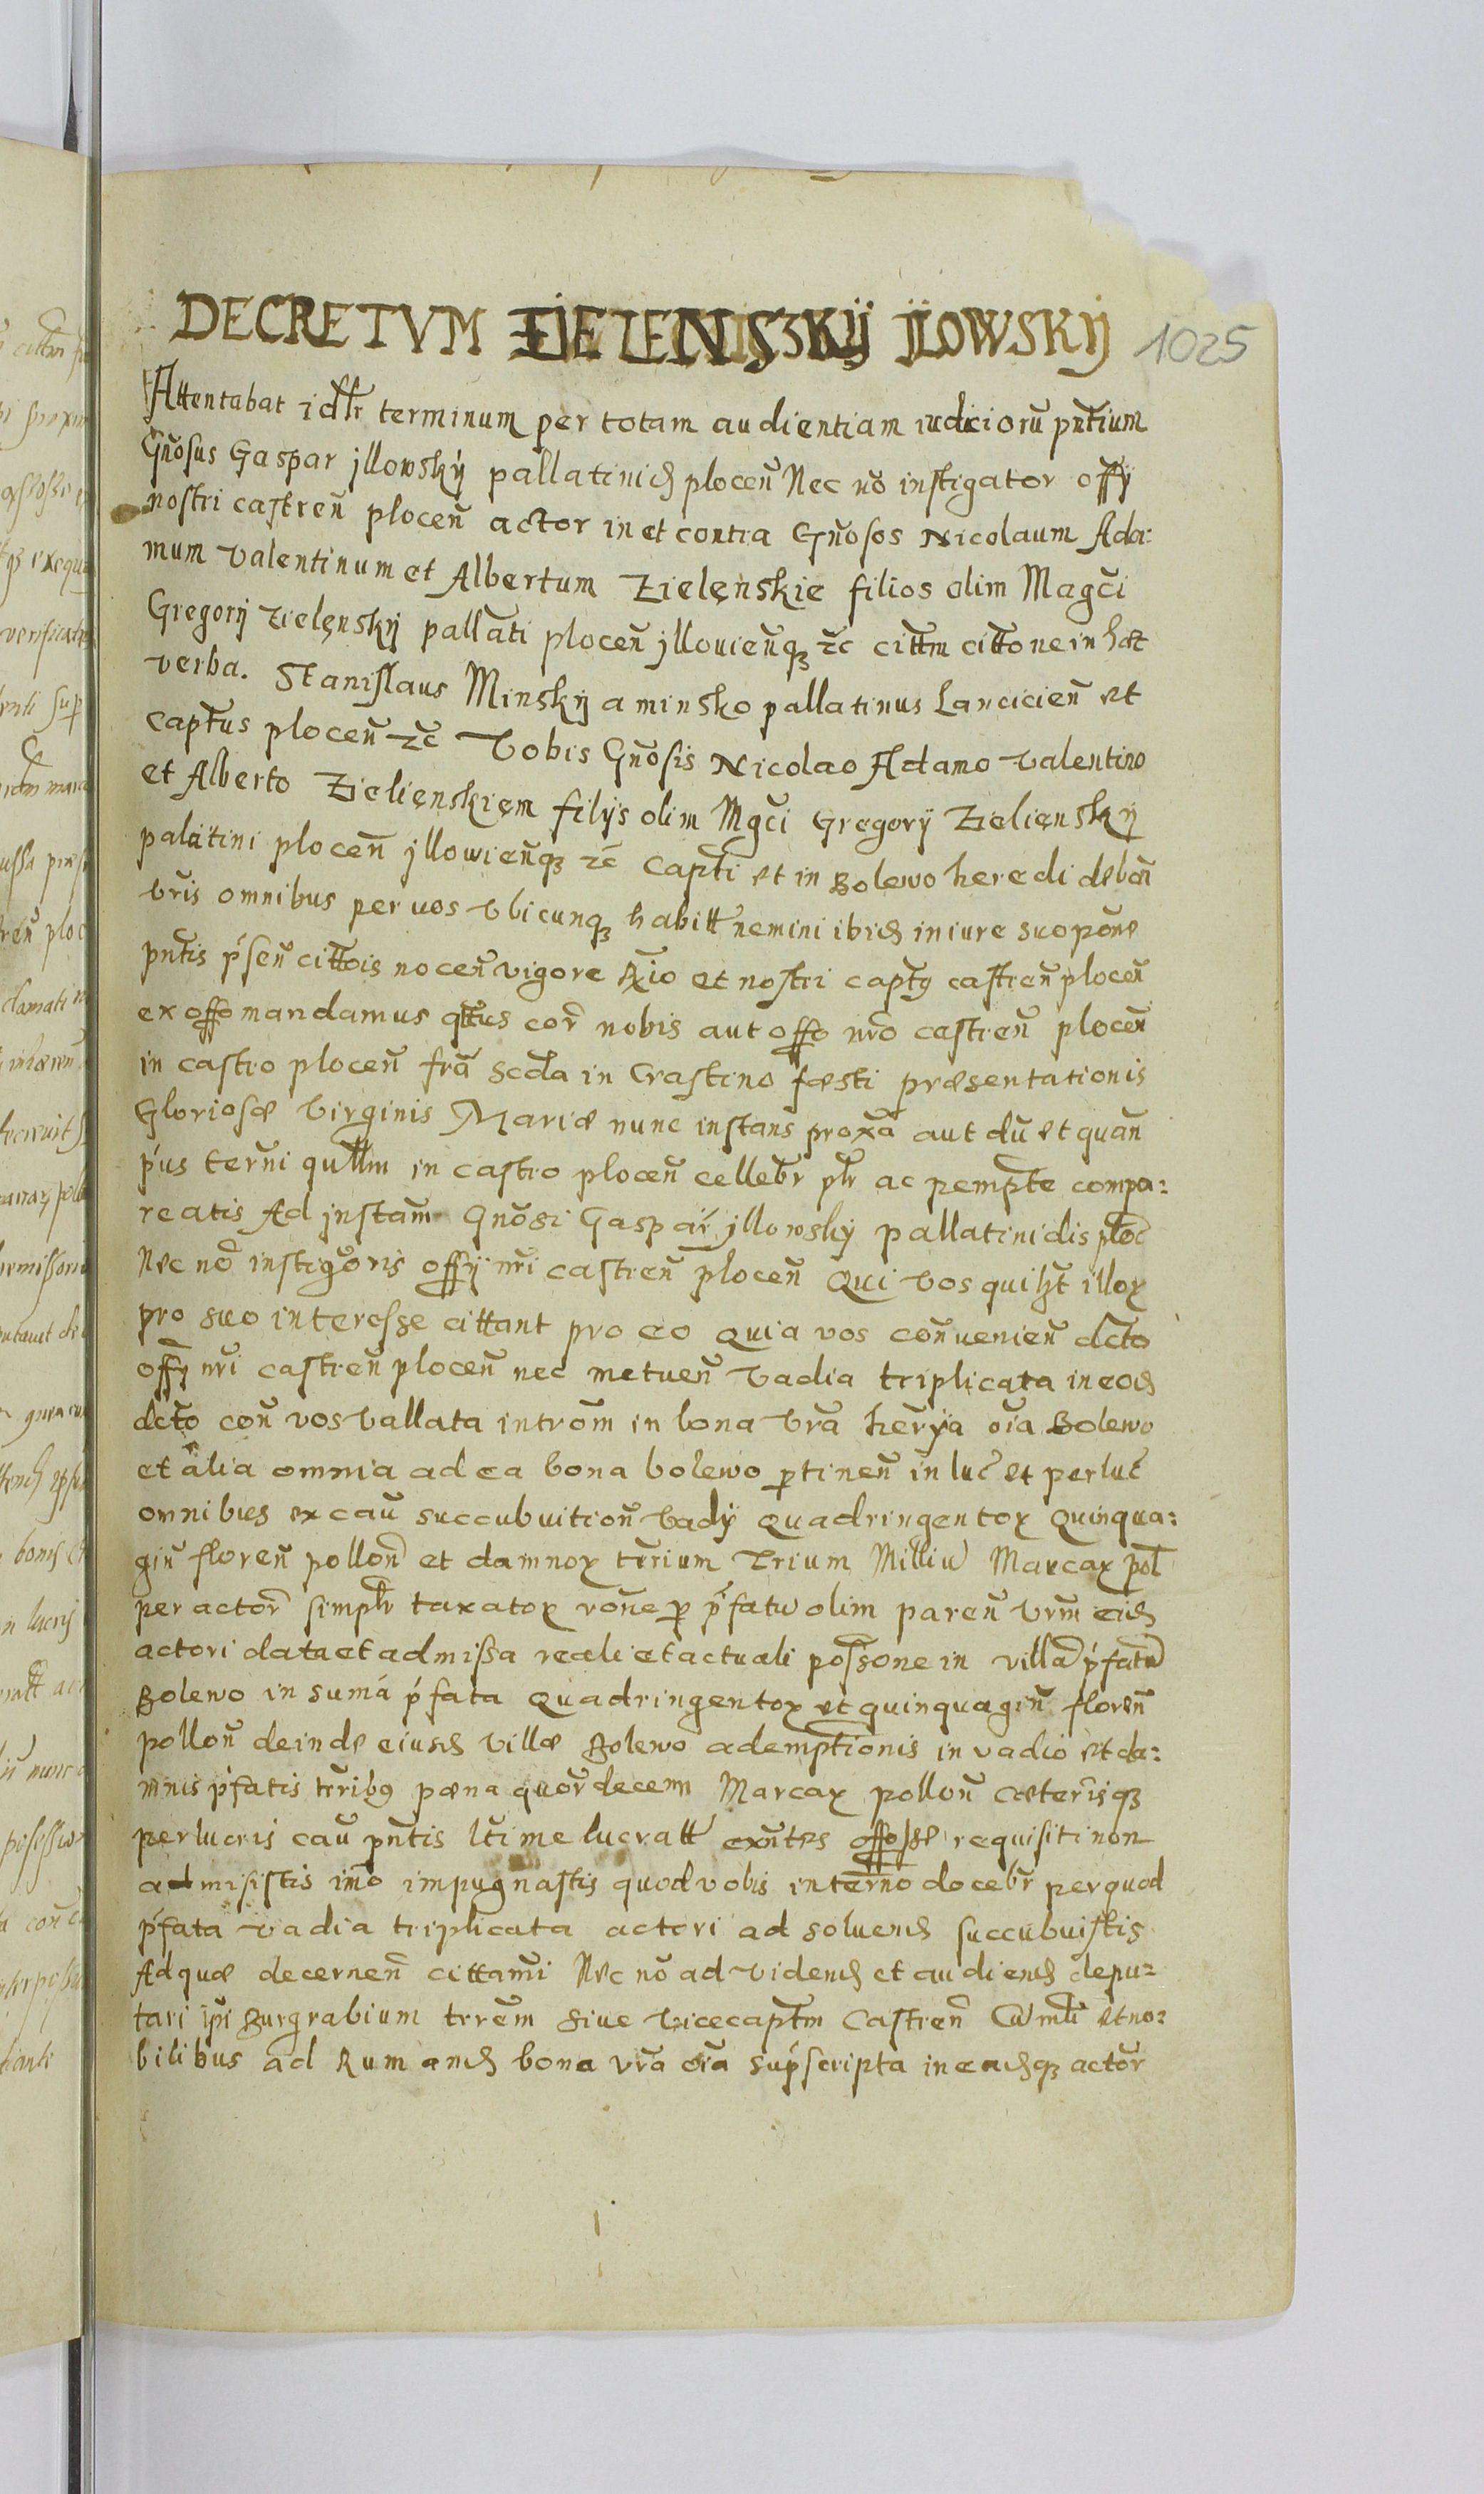 DECRETVM ZIELENSKIJ JLOWSKIJ 1025
Attentabat idlr terminum per totam audientiam iudicioru pntium
Gnosus Gaspar jllowskÿ pallatinid plocen Nec no instigator offÿ
nostri castren plocen actor in et contra Gnosos Nicolaum Ada:
mum Valentinum et Albertum Zielęnskie filios olim Magci
Gregorÿ Zielęnskÿ pallati plocen jllouienqȝ zc cittm cittone in hæc
verba. Stanislaus Minskÿ a minsko pallatinus Lancicien et
captus plocen zc Vobis Gnosis Nicolao Adamo Valentino
et Alberto Zielięnskięm filÿs olim Mgci Gregorÿ Zielięnskÿ
palatini plocen jllowienqȝ zc Capti et in Bolewo heredi de bon
vris omnibus per uos Vbicunqȝ habitt nemini ibid in iure suo pone
pntis psen cittois nocen vigore Rio et nostri captꝰ castren plocen
ex offo mandamus qttus cor nobis aut offo nro castren plocen
in castro plocen fra scda in Crastino fæsti præsentationis
Gloriosæ Virginis Mariæ nunc instans proxa aut du et quan
pus terni qullm in castro plocen cellebr plr ac pempte compa:
reatis Ad jnstam Gnosi Gaspar jllowskÿ pallatinidis ploc
Nec no instigoris offÿ nri castren plocen Qui vos quilzt illoꝝ
pro suo interesse cittant pro eo Quia vos conuenien dcto
offÿ nri castren plocen nec metuen Vadia triplicata in eod
dcto con vos Vallata introm in bona Vra herÿa oia Bolewo
et alia omnia ad ea bona bolewo ptinen in luc et per luc
omnibus ex cau succubuition Vadÿ Quadringentoꝝ Quinqua:
gin floren pollon et damnoꝝ trrium Trium Milliu Marcaꝝ pol
per actor simplr taxatoꝝ rone p pfatu olim paren Vrm eid
actori data et admissa reali et actuali possone in villa pfatu
Bolewo in suma pfata Quadringentoꝝ et quinquagin floren
pollon deinde eiusd villæ Bolewo ademptionis in vadio et da:
mnis pfatis trribꝰ pæna quordecem Marcaꝝ pollon cæterisqȝ
per lucris cau pntis lti me lucratt exntes offose requisiti non
admisistis imo impugnastis quod vobis in terno docebr per quod
pfata vadia triplicata actori ad soluend succubuistis
Ad quæ decernen cittami Nec no ad Videnð et audienð depu:
tari ipi Burgrabium trrem siue Vicecaptm Castren Cu mli et no:
bilibus ad Rumand bona vra oia supscripta in eadqȝ actor